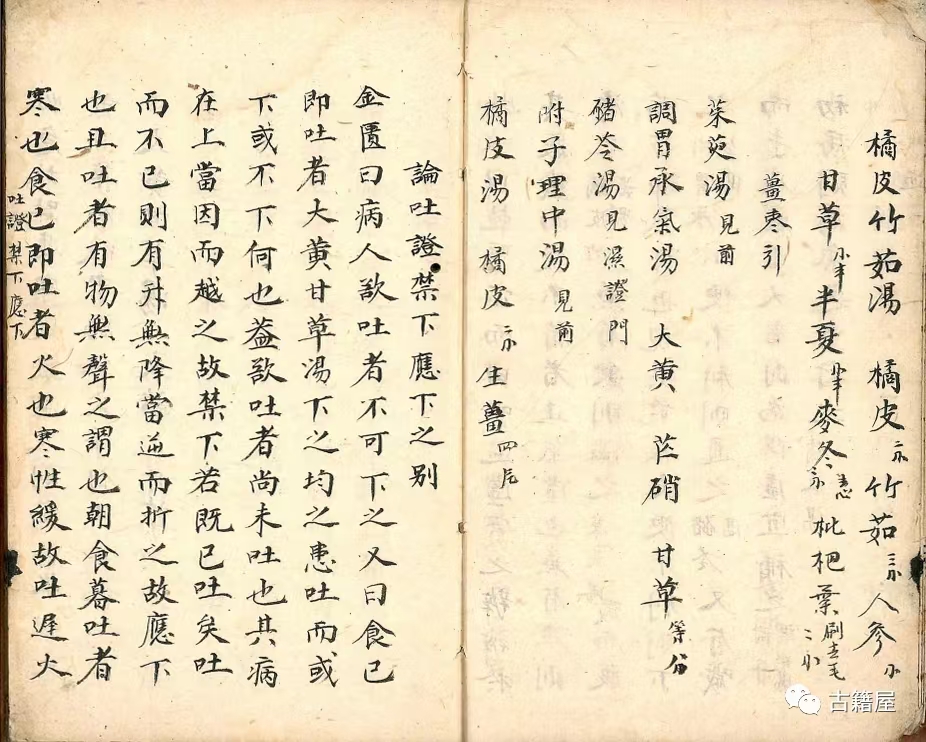 橘皮竹茹湯 橘皮 竹茹 人參
甘草 半夏 麥冬去心 枇杷葉刷去毛
薑棗引
茱萸湯見前
調胃承氣湯 大黄 芒硝 甘草等分
豬苓湯見濕證門
附子理中湯見前
橘皮湯 橘皮 生薑四片
論吐證禁下應下之别
金匱曰病人欲吐者不可下之又曰食已
即吐者大黄甘草湯下之均之患吐而或
下或不下何也葢欲吐者尚未吐也其病
在上當因而越之故禁下若既已吐矣吐
而不已則有升無降當逆而折之故應下
也且吐者有物無聲之謂也朝食暮吐者
寒也食已即吐者火也寒性緩故吐遲火
吐證禁下應下
古籍屋